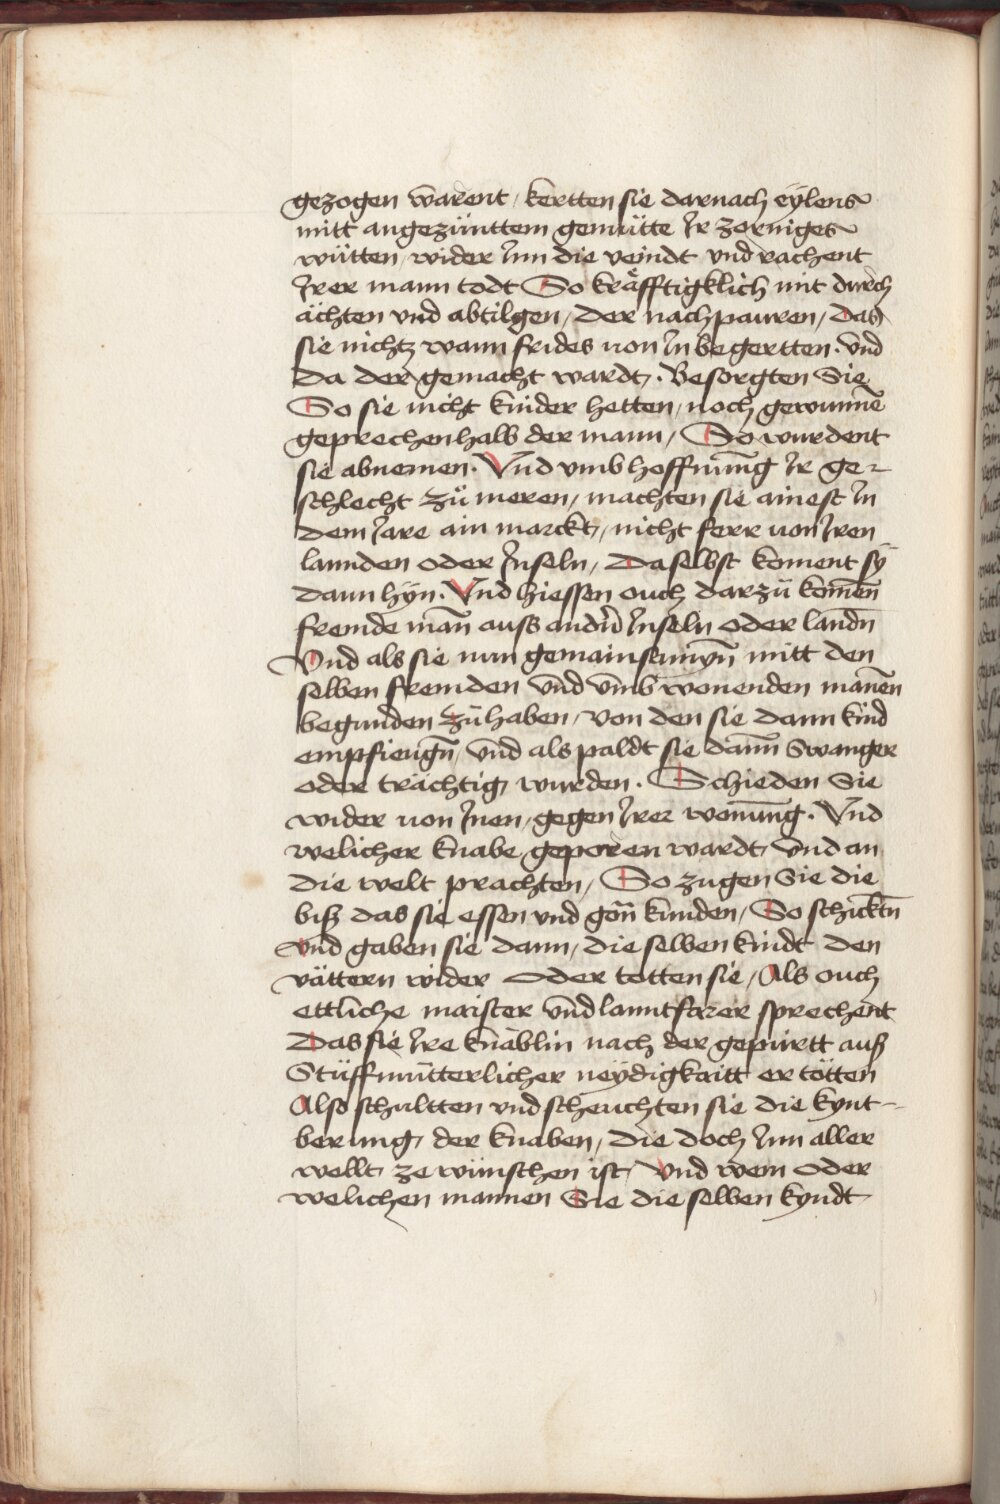 gezogen warent / kertten sie darnach eylens
mitt angezünttem gemütte Ir zorniges
wütten / wider Inn die veindt vnd rachent
Irer mann todt So kräfftigklich mit durch
ächten vnd abtilgen / der nachpauren / Das
sie nichtz wann frides von In begertten . vnd
da der gemacht wardt . Besorgten Sie
So sie nicht kinder hetten / noch gewunnē
geprechenhalb der mann / So wurdent
sie abnemen . Vnd vmb hoffnūng Ir ge-
schlecht zů meren / machten sie ainest In
dem Jare ain marckt / nicht ferr von Iren
lannden oder Inseln / Daselbst koment sÿ
dann hÿn . Vnd hiessen ouch darzů komēn
fremde mān auss andn̄ Inseln oder landn̄
Vnd als sie nun gemainsamÿn̄ mitt den
selben fremden vnd vmb wonenden manēn
begunden zů haben / von den sie dann kind
empfiengn̄ / vnd als paldt sie dann̄ Swanger
oder trächtig wurden . Schieden Sie
wider von Inen / gegen Irer wonūng . Vnd
welicher knabe geporen wardt vnd an
die welt prachten / So zugen Sie die
biß das sie essen vnd gön̄ kunden / So schicktn̄
vnd gaben sie dann / die selben kindt den
vättern wider oder totten sie / Als ouch
ettliche maister vnd lanntfarer sprechent
Das sie Ire knäblin nach der gepürtt auß
Stüffmütterlicher neydigkaitt ertötten
Also schultten vnd scheuchten sie die kynt-
berung der knaben / die doch Inn aller
wellt ze wünschen ist / Vnd wem oder
welichen mannen Sie die selben kyndt